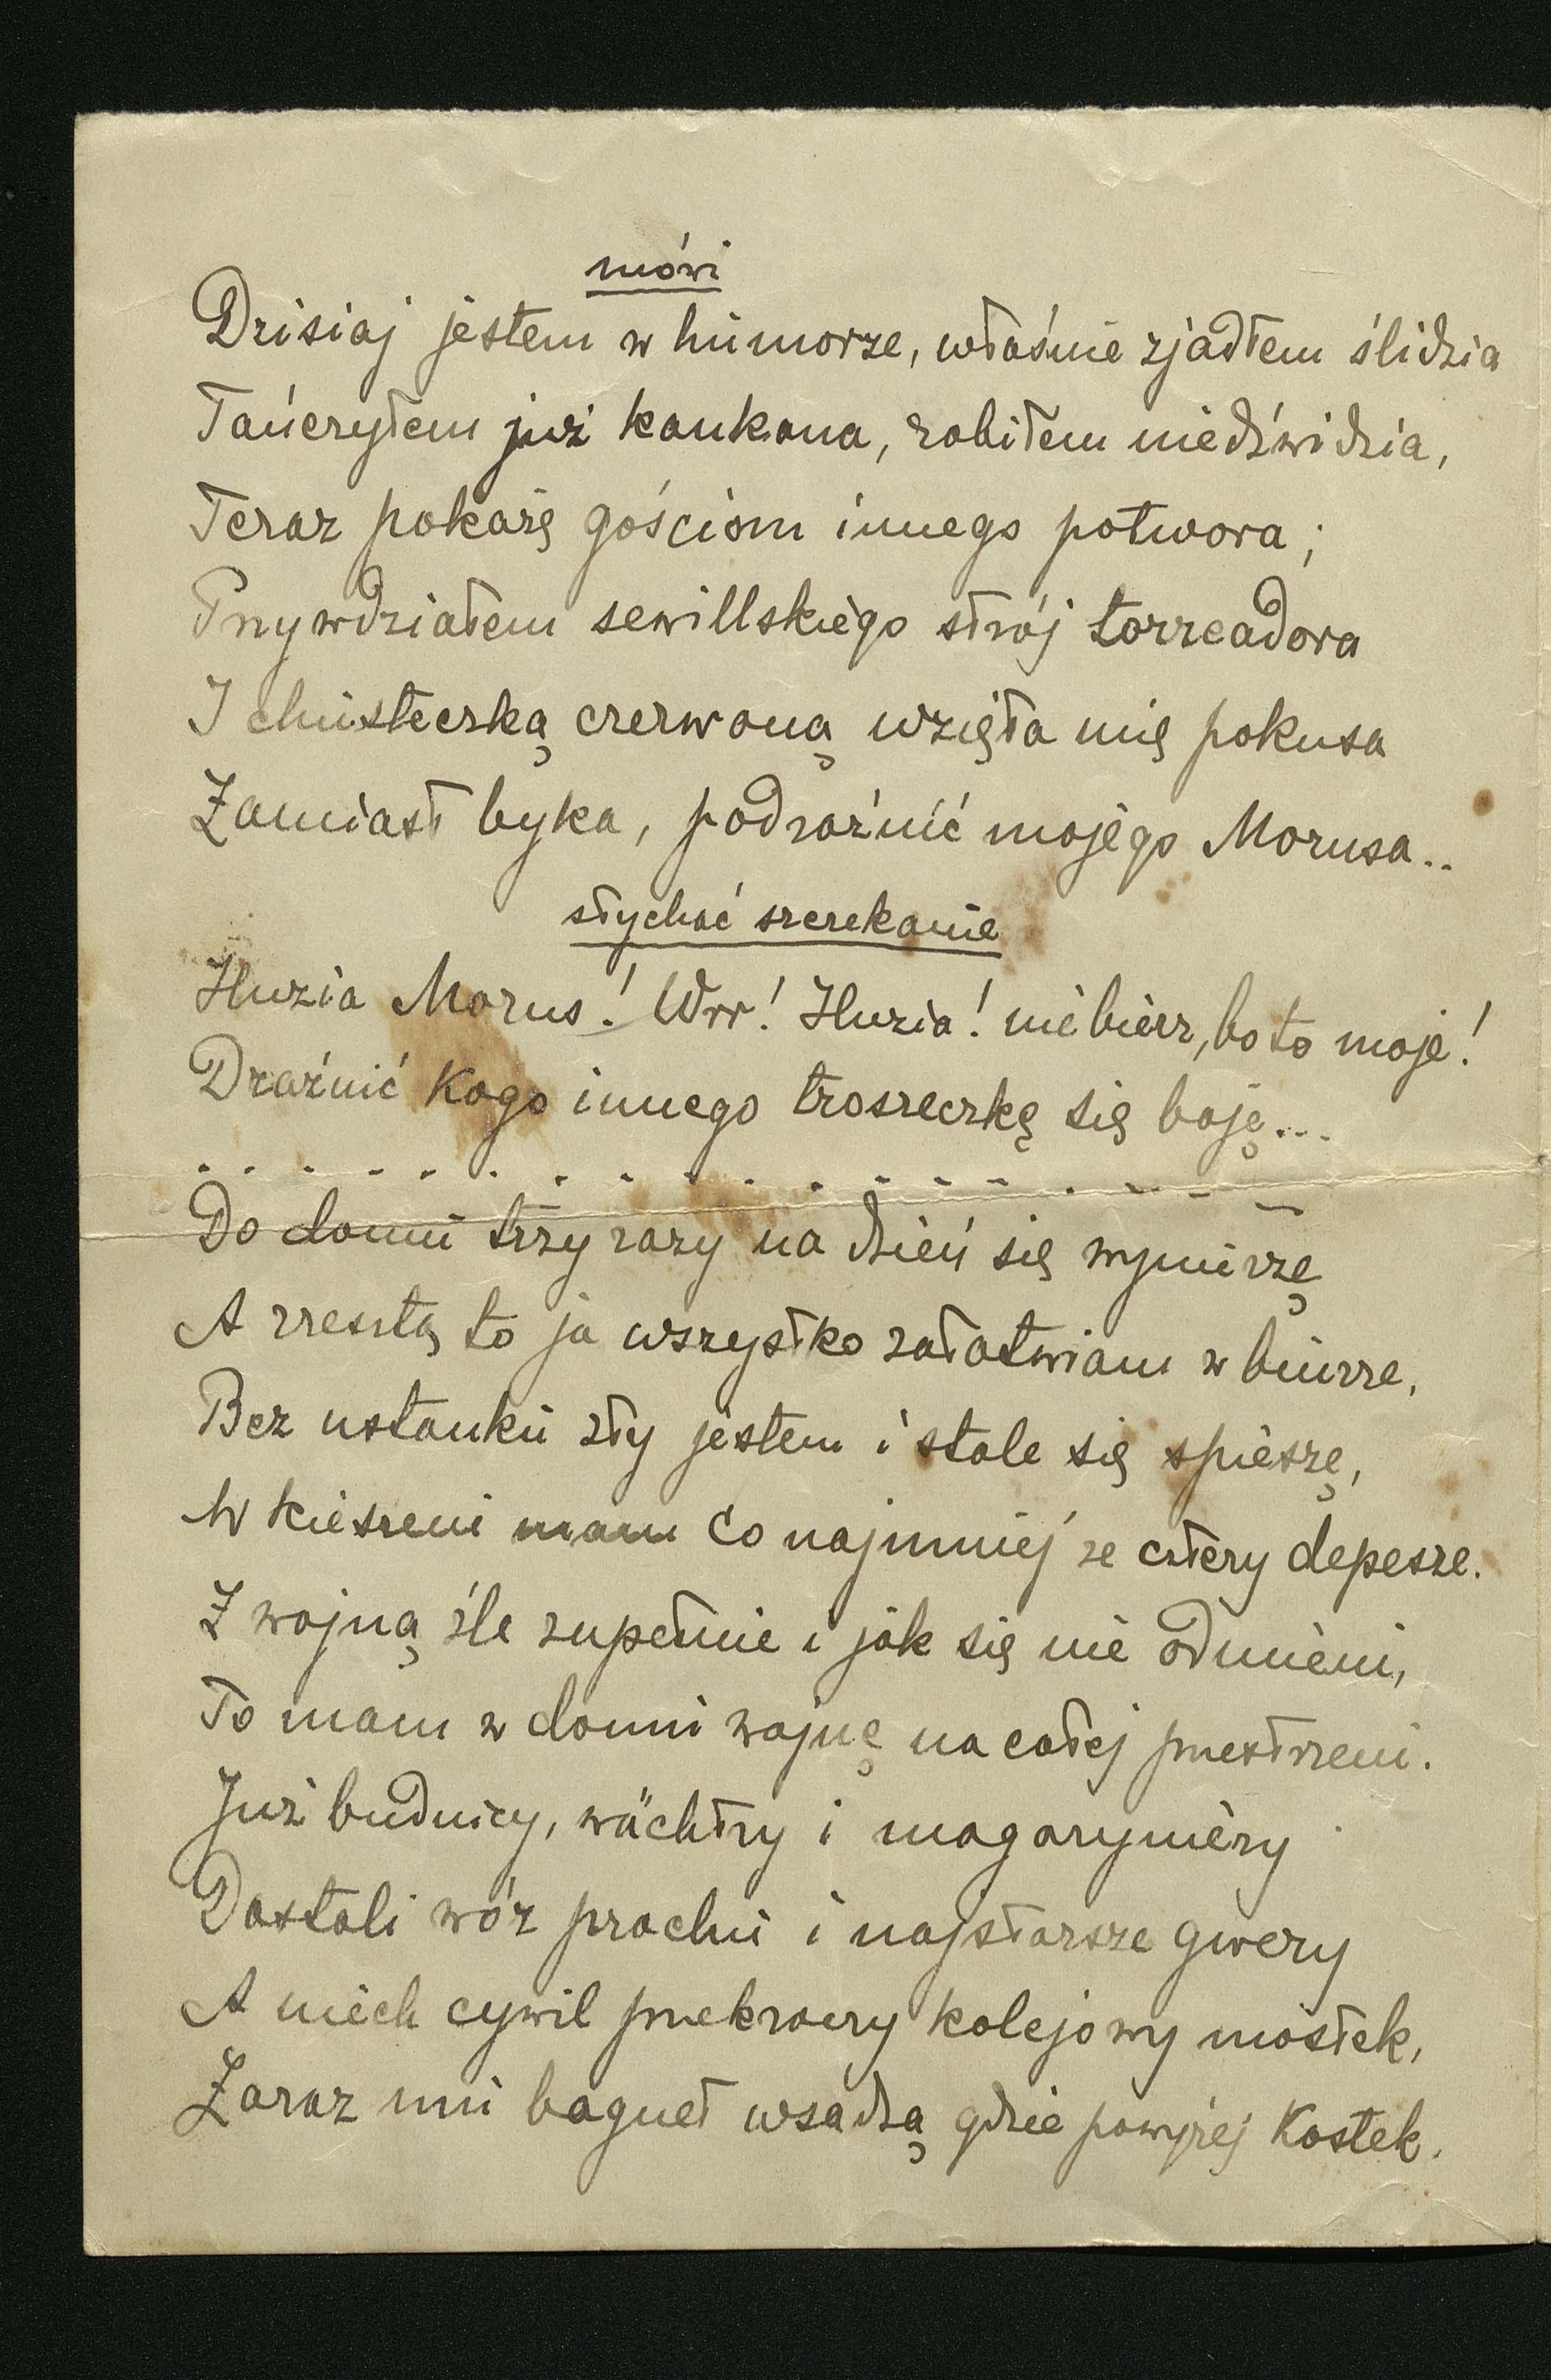 mówi
Dzisiaj jestem w humorze, właśnie zjadłem ślidzia
Tańczyłem już kankana, robiłem niedźwidzia,
Teraz pokażę gościom innego potwora;
Przywdziałem sewillskiego strój torreadora
I chusteczką czerwoną wzięła mię pokusa
Zamiast byka, podrażnić mojego Morusa..
słychać szczekanie
Huzia Morus! Wrr! Huzia! nie bierz, bo to moje!
Drażnić kogo innego troszeczkę się boję...
. . . . . . . . . . . . . . . . . .
Do domu trzy razy na dzień się wynurzę
A zresztą to ja wszystko załatwiam w biurze,
Bez ustanku zły jestem i stale się spieszę,
W kieszeni mam co najmniej ze cztery depesze.
Z wojną źle zupełnie i jak się nie odmieni,
To mam w domu wojnę na całej przestrzeni.
Już budnicy, wächtry i magazyniery
Dostali wór prochu i najstarsze gwery
A niech cywil przekroczy kolejowy mostek,
Zaraz mu bagnet wsadzą gdzie powyżej kostek.